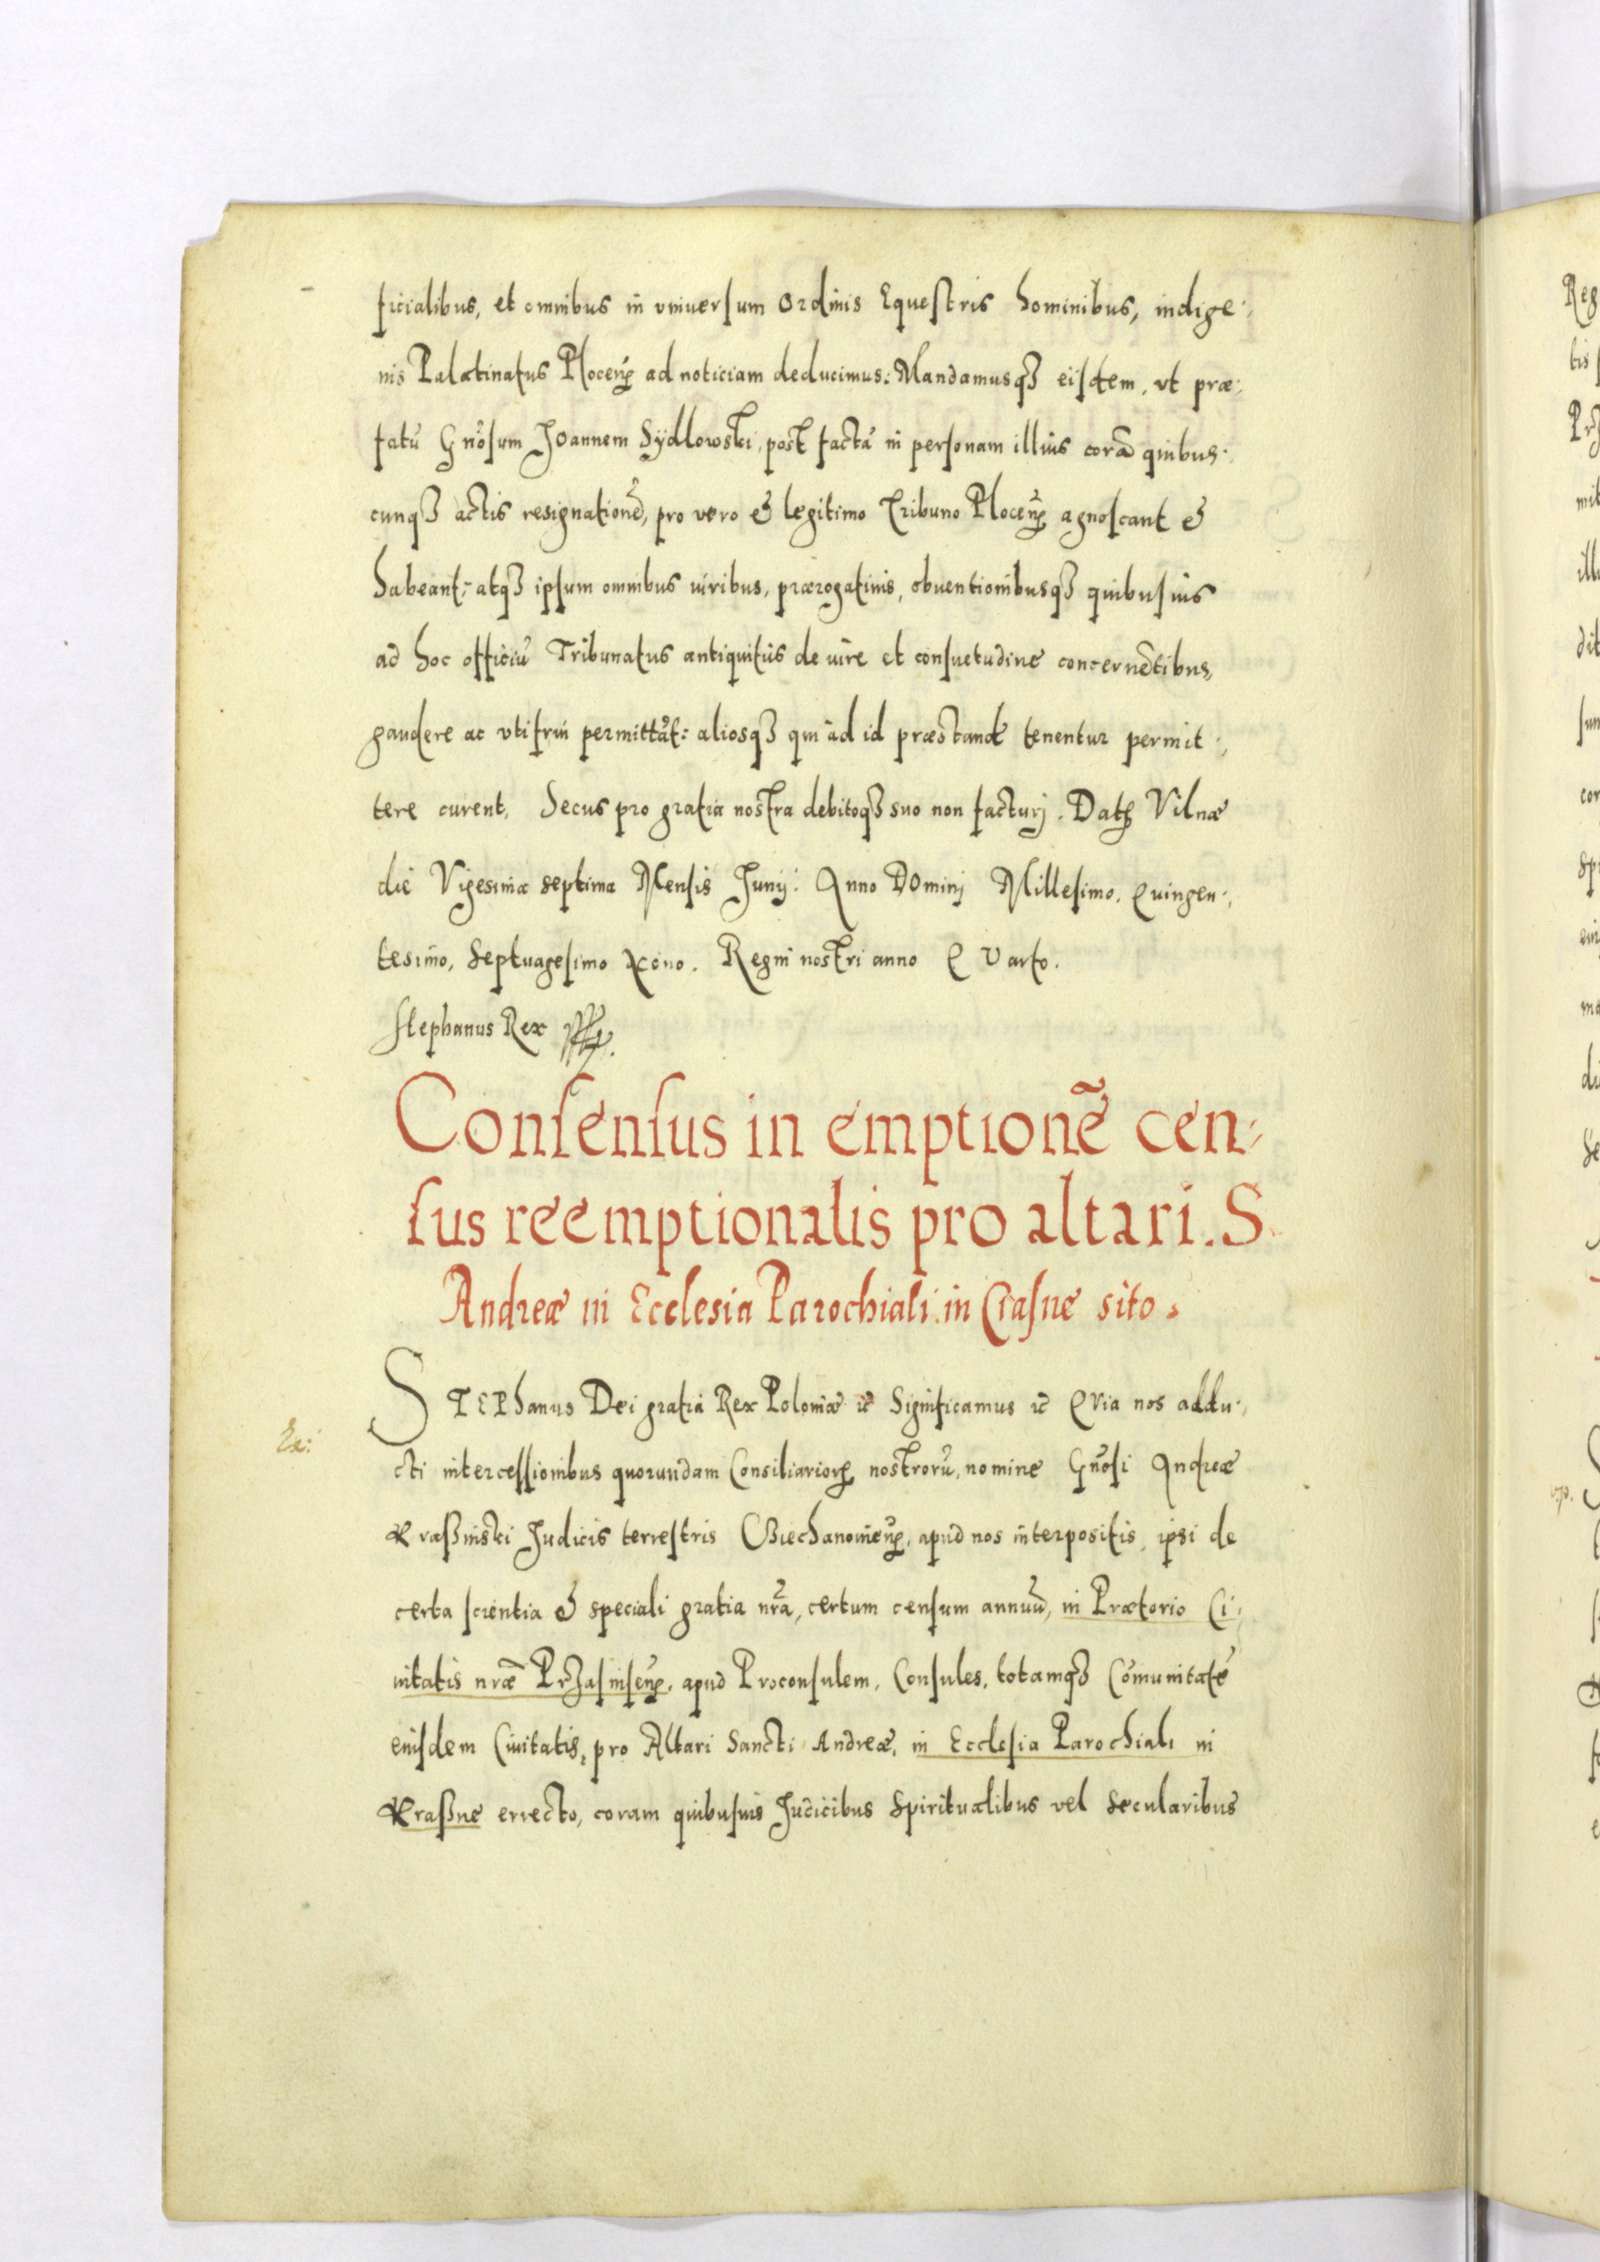 ficialibus, et omnibus in vniuersum Ordinis Equestris hominibus, indige:
nis Palatinatus Plocen̄ ad noticiam deducimus: Mandamusq3 eisdem, vt præ:
fatū Gn̄osum Joannem Sydlowski, post factā in personam illius corā quibus:
cunq3 actis resignationē, pro vero & legitimo Tribuno Plocen̄ agnoscant &
habeant: atq3 ipsum omnibus iuribus, prærogatiuis, obuentionibusq3 quibusuis
ad hoc officiū Tribunatus antiquitùs de iure et consuetudine concernētibus,
gaudere ac vti frui permittāt: aliosq3 qui ad id præstandū tenentur permit:
tere curent, Secus pro gratia nostra debitoq3 suo non facturj. Datꝭ Vilnæ
die Vigesima septima Mensis Junij: Anno Dominj Millesimo. Quingen:
tesimo, Septuagesimo Nono. Regni nostri anno Quarto.
Stephanus Rex
Consensus in emptionē cen:
sus reemptionalis pro altari. S
Andreæ in Ecclesia Parochiali in Crasne sito.
STEPhanus Dei gratia Rex Poloniæ ꝛc Significamus ꝛc Quia nos addu:
Ex:
cti intercessionibus quorundam Consiliarioꝝ nostrorū, nomine Gn̄osi Andreæ
Kraßinski Judicis terrestris Ciechanouien̄, apud nos interpositis, ipsi de
certa scientia & speciali gratia nr̄a, certum censum annuū, in Prætorio Ci:
uitatis nr̄æ Przasnisen̄, apud Proconsulem, Consules, totamq3 Cōmunitatē
eiusdem Ciuitatis, pro Altari Sancti Andreæ, in Ecclesia Parochiali in
Kraßne errecto, coram quibusuis Judicibus Spiritualibus vel Secularibus